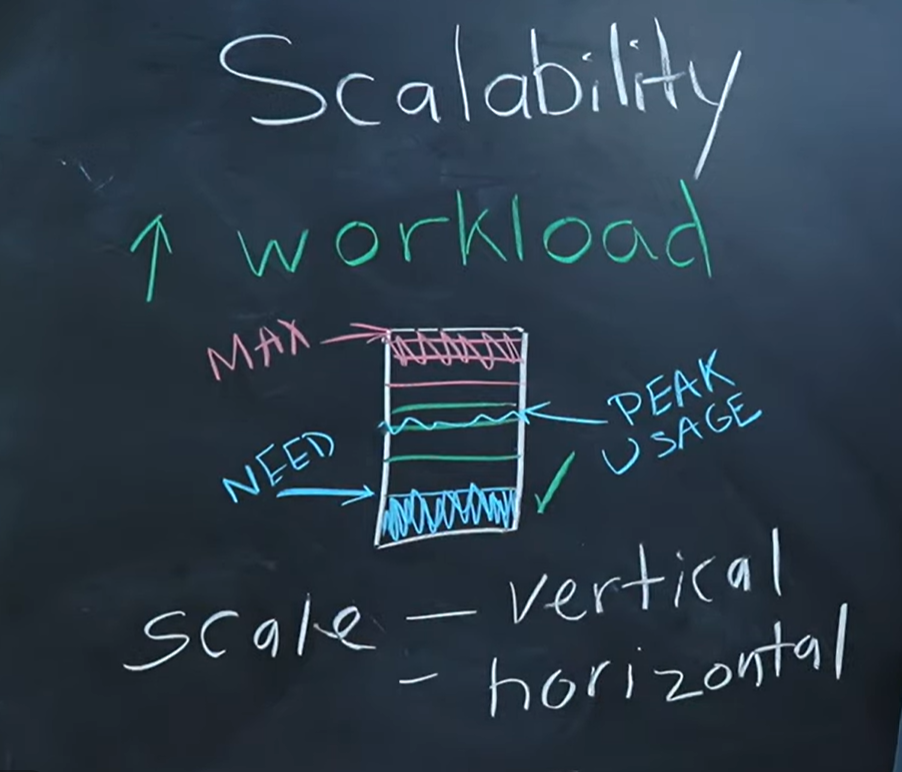 Scalability
↑ workload
MAX
PEAK
USAGE
NEED
scale — vertical
- horizontal